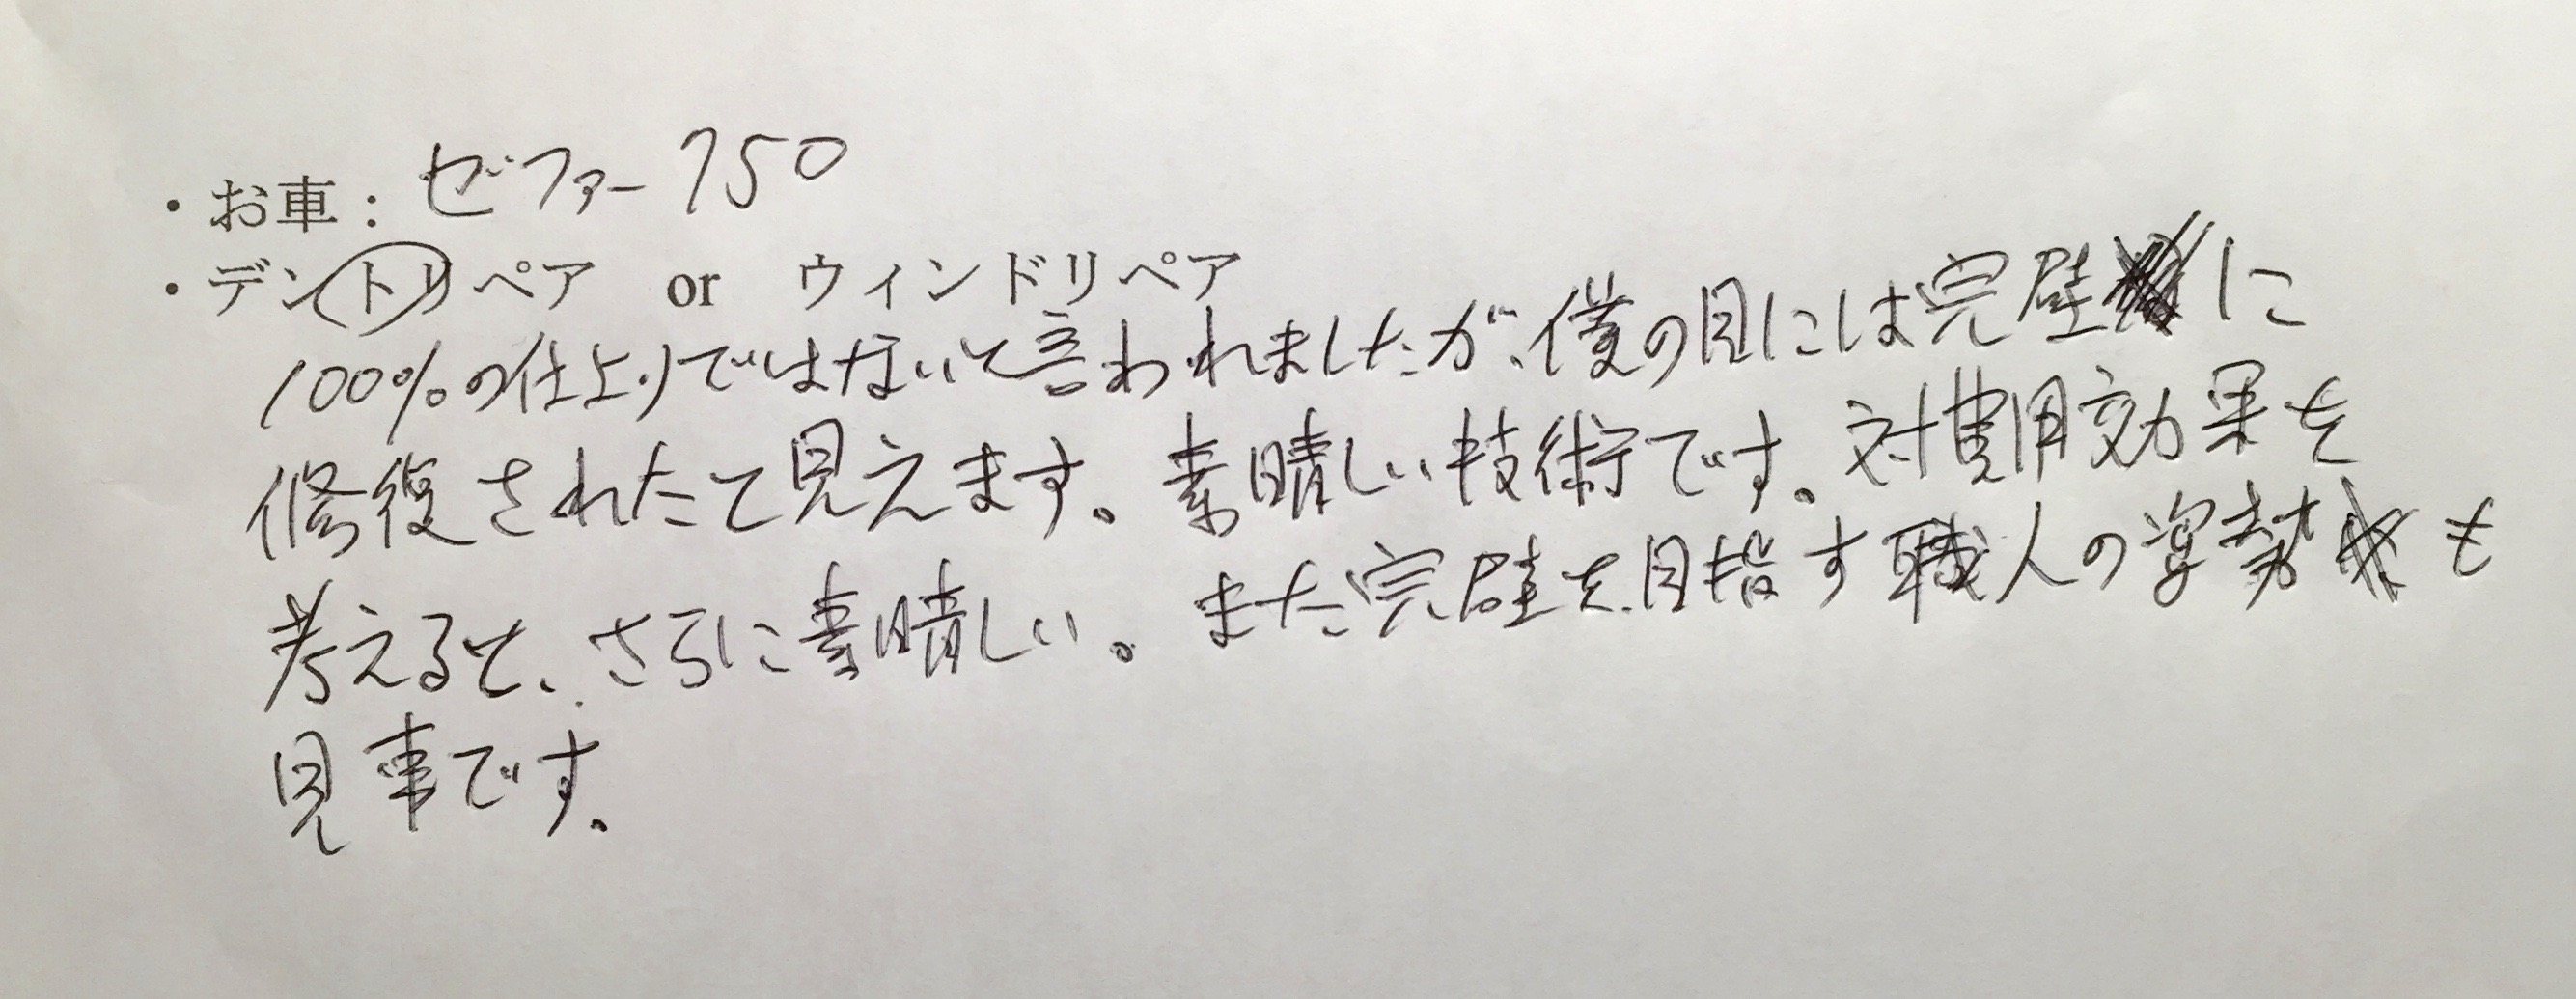 ・お車：ゼファー750
・デントリペア or ウィンドリペア
100%の仕上りではないと言われましたが、僕の目には完璧に
修復されたと見えます。素晴しい技術です。対費用効果を
考えると、さらに素晴しい。また完璧を目指す職人の姿勢も
見事です。